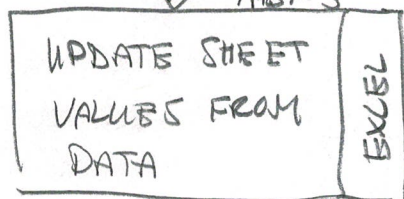 UPDATE SHEET
VALUES FROM
DATA
EXCEL